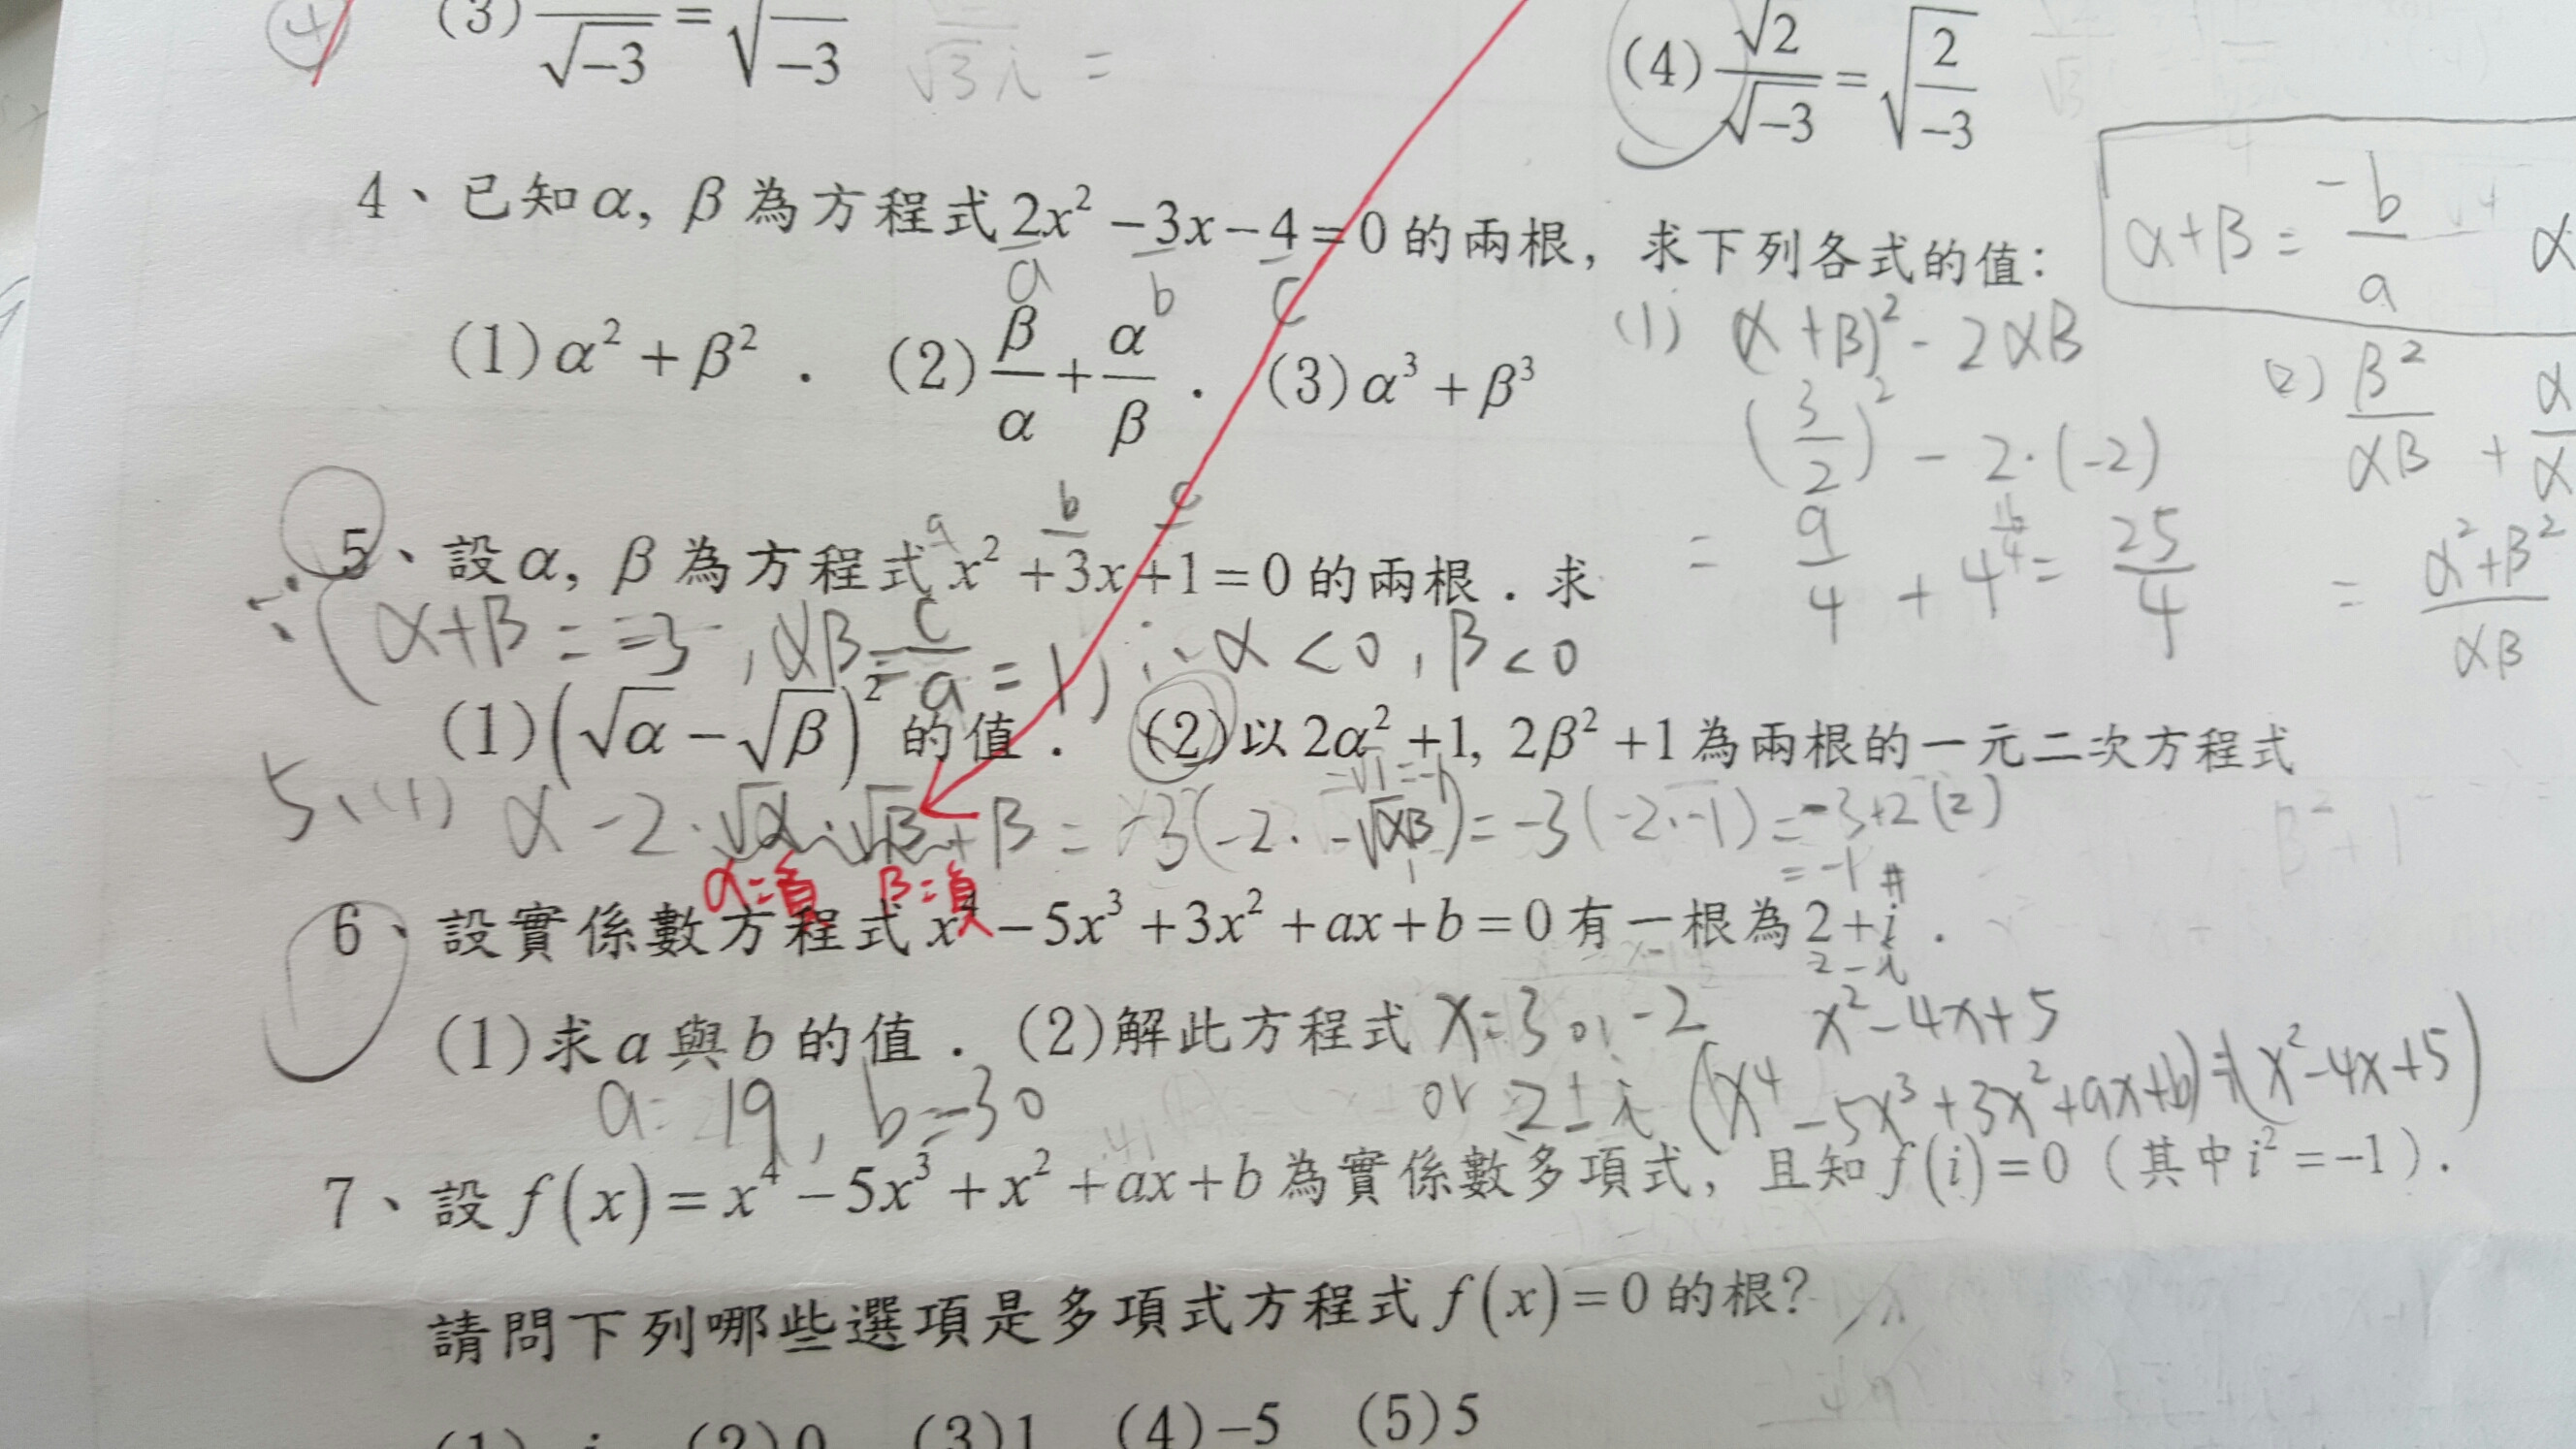 ④ (3) /√-3 = √ /-3
√3 i =
(4) √2/√-3 = √(2/-3)
4、已知α, β為方程式2x² -3x-4=0的兩根, 求下列各式的值:
a b c
α+β = -b/a α
(1)α²+β² . (2)β/α+α/β . (3)α³+β³
(1) (α+β)² - 2αβ
(3/2)² - 2·(-2)
= 9/4 + 4 16/4 = 25/4
(2) β²/αβ + α/α
= α²+β²/αβ
a b c
5、設α, β為方程式x²+3x+1=0的兩根.求
∵(α+β = -3, αβ = c/a = 1) ∴ α<0, β<0
(1)(√α-√β)²的值. (2)以2α²+1, 2β²+1為兩根的一元二次方程式
=√1=-1
5、(1) α-2·√α·√β+β = -3(-2·-√αβ) = -3(-2·-1) = -3+2(2)
1
= -1 #
α=負 β=負
6、設實係數方程式x⁴-5x³+3x²+ax+b=0有一根為2+i .
2-i
(1)求a與b的值. (2)解此方程式 x=3 or -2 x²-4x+5
a= 19, b=-30 or 2±i (x⁴-5x³+3x²+ax+b)÷(x²-4x+5)
7、設f(x)=x⁴-5x³+x²+ax+b為實係數多項式, 且知f(i)=0(其中i²=-1).
請問下列哪些選項是多項式方程式f(x)=0的根?
(1)-i (2)0 (3)1 (4)-5 (5)5